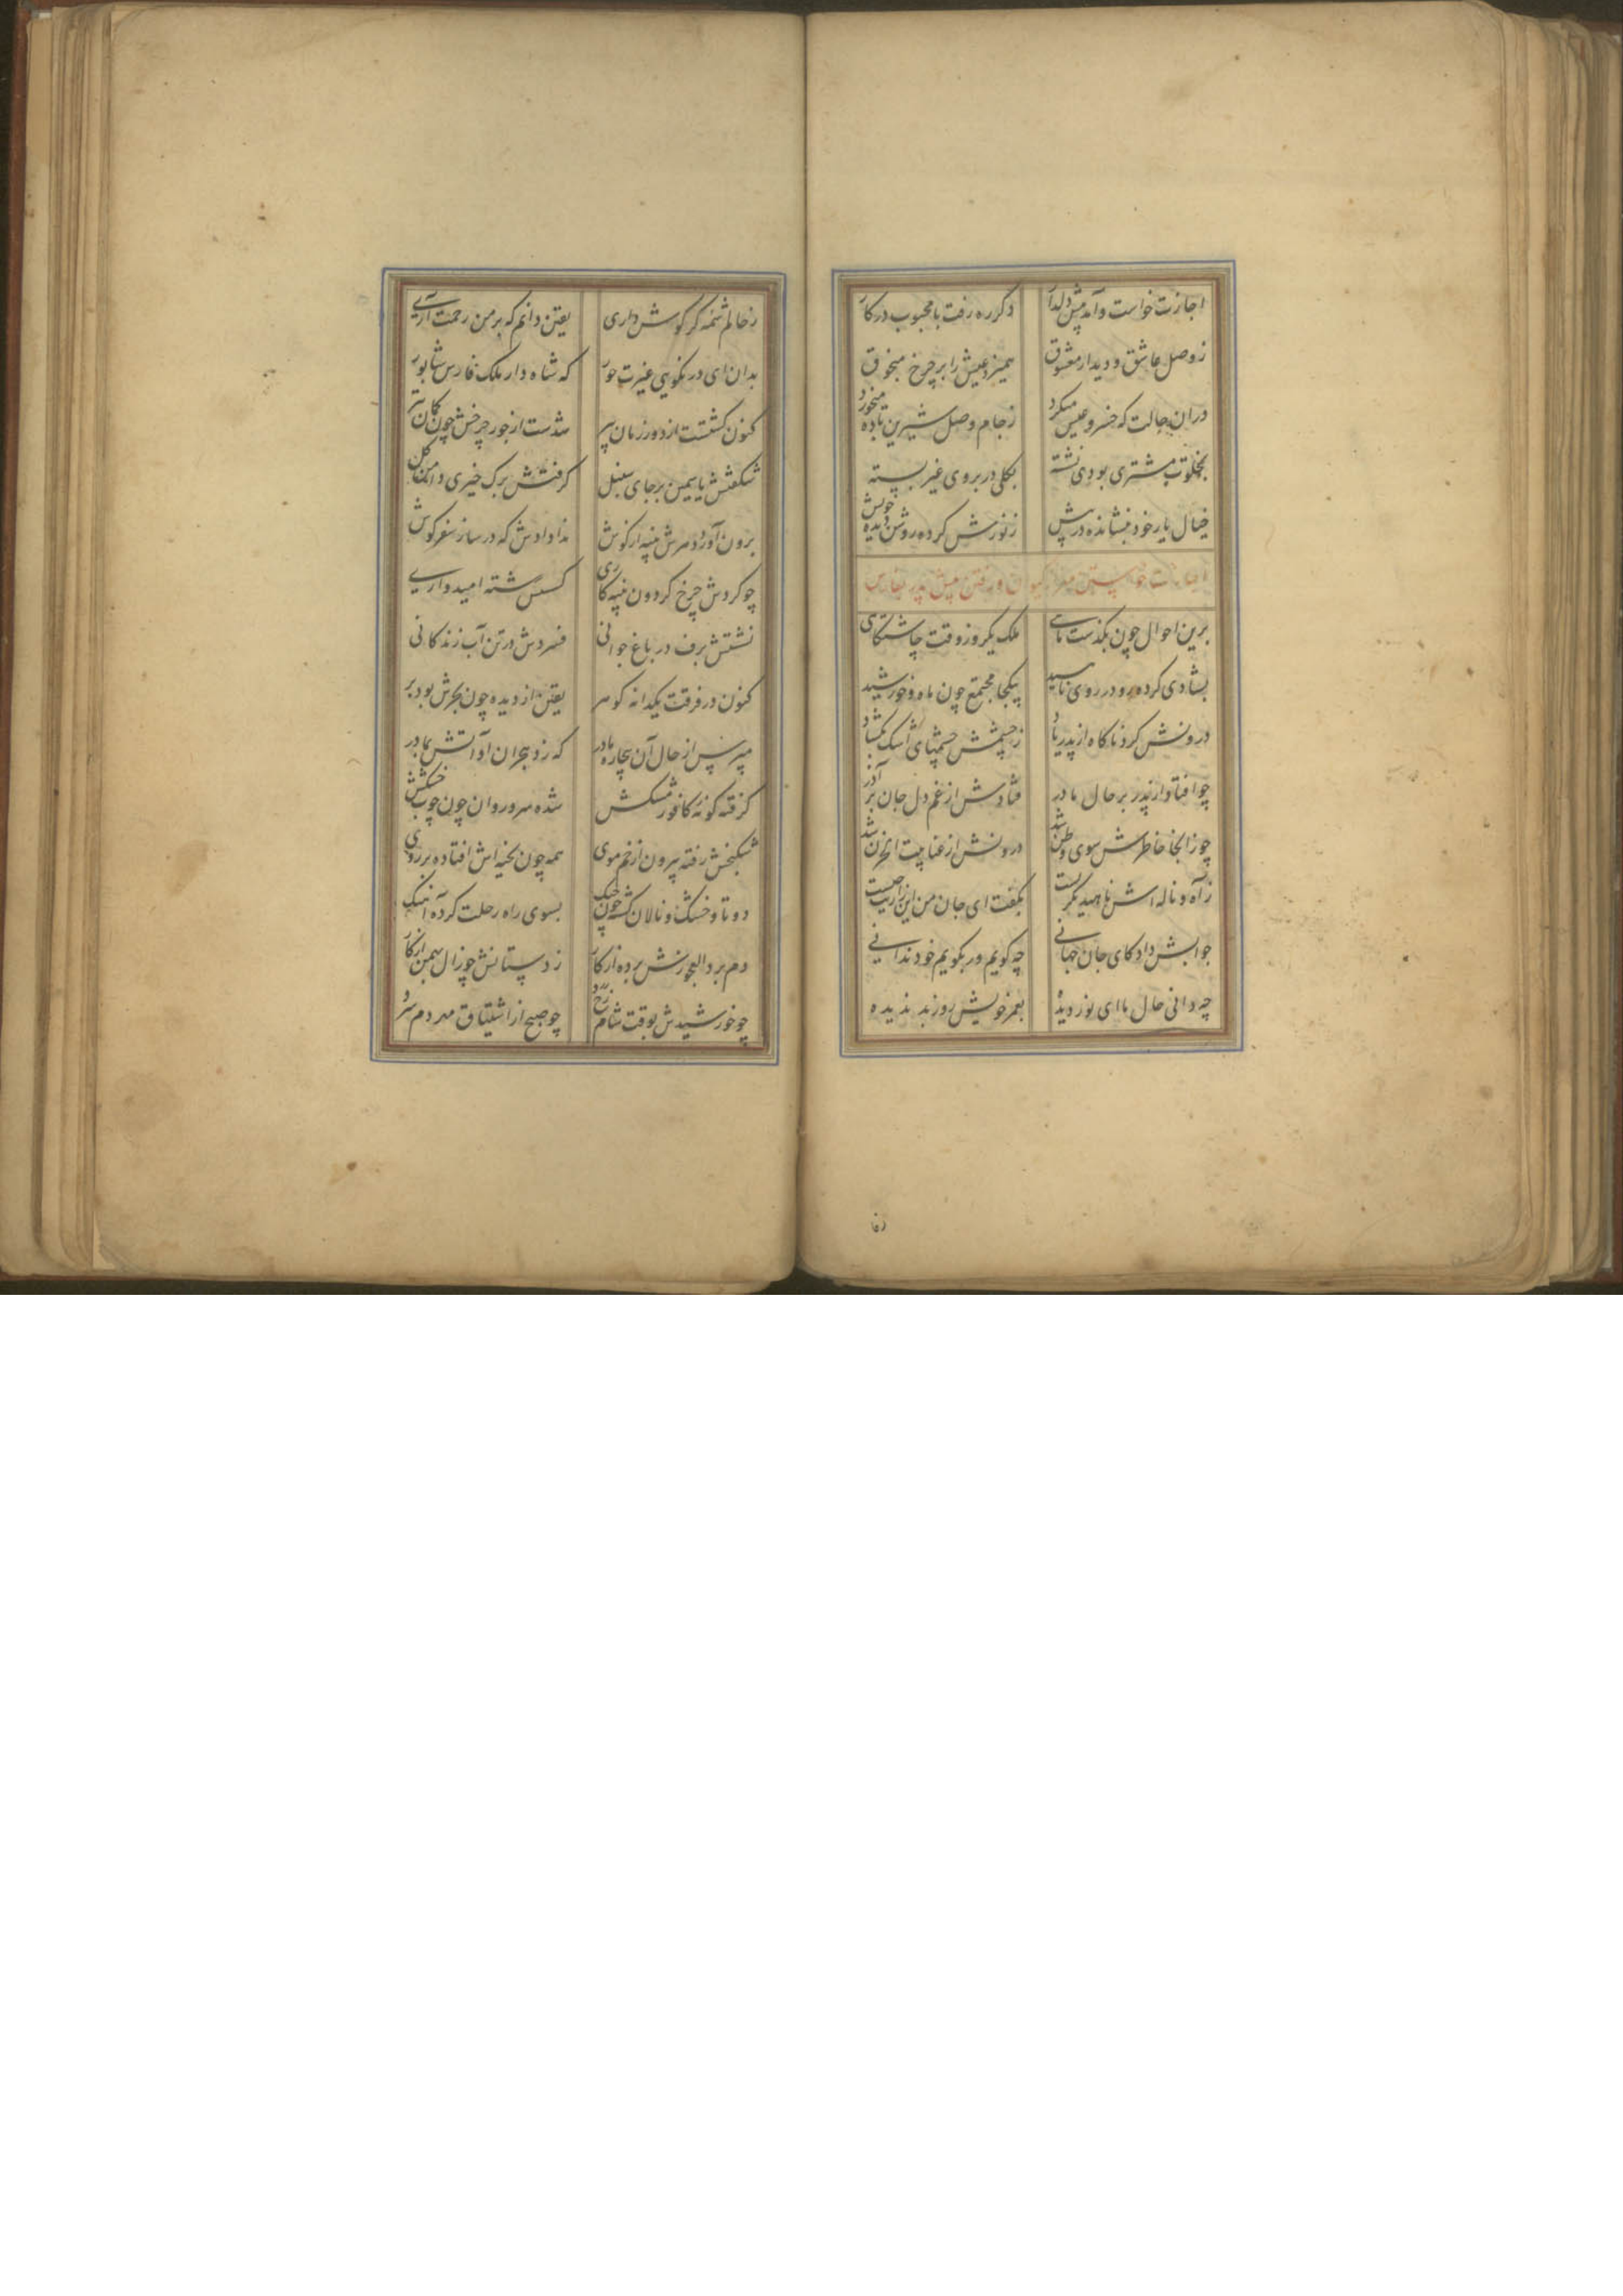 اجازت خواست و آمد پیش دلدار دگر ره رفت با محبوب در کار
ز وصل عاشق و دیدار معشوق همیزد عیش را بر چرخ منجوق
دران حالت که خسرو عیش میکرد ز جام وصل شیرین باده میخورد
بخلوت مشتری بودی نشسته بکلی در بروی غیر بسته
خیال یار خود بنشانده در پیش ز نورش کرده روشن دیده خویش
اجازت خواستن مهر از کیوان و رفتن پیش پدر بفارس
برین احوال چون بگذشت ماهی ملک یکروز وقت چاشتگاهی
بشادی کرده رو در روی ناهید بیکجا مجتمع چون ماه و خورشید
درونش کرد ناکاه از پدر یاد ز چشمش چشمهای اشک بکشاد
چو افتاد از پدر بر حال مادر فتادش از غم دل جان بر آذر
چو زانجا خاطرش سوی وطن شد درونش از غنا بیت الحزن شد
ز آه و ناله اش ناهید بگریست بگفت ای جان من این زاریت چیست
جوابش داد کای جان جهانی چه گویم ور بگویم خود ندانی
چه دانی حال ما ای نور دیده بعمر خویش روز بد ندیده
ز حالم شمه گر گوش داری یقین دانم که بر من رحمت آری
بدان ای در نکویی غیرت حور که شاه دار ملک فارس شابور
کنون گشتست از دور زمان پیر شدست از جور چرخش چون کمان تیر
شکفتش یاسمین بر جای سنبل گرفتش برگ خیری دامن گل
برون آورد دهرش پنبه از گوش ندا دادش که در ساز سفر کوش
چو کردش چرخ گردون پنبه کاری گسستش رشته امیدواری
نشستش برف در باغ جوانی فسردش در تن آب زندگانی
کنون در فرقت یکدانه گوهر یقین از دیده چون بحرش بود بر
مپرس از حال آن بیچاره مادر که زد هجران او آتش بمادر
گرفته گونه کافور مشکش شده سرو روان چون چوب خشکش
شکنجش رفته بیرون از خم موی همه چون بخیه اش افتاده بر روی
دوتا و خشک و نالان گشته چون چنگ بسوی راه رحلت کرده آهنگ
دم برد العجوزش برده از کار ز دستانش چو زال بهمن از کار
چو خورشیدش بوقت شام رخ زرد چو صبح از اشتیاق مهر دم سرد